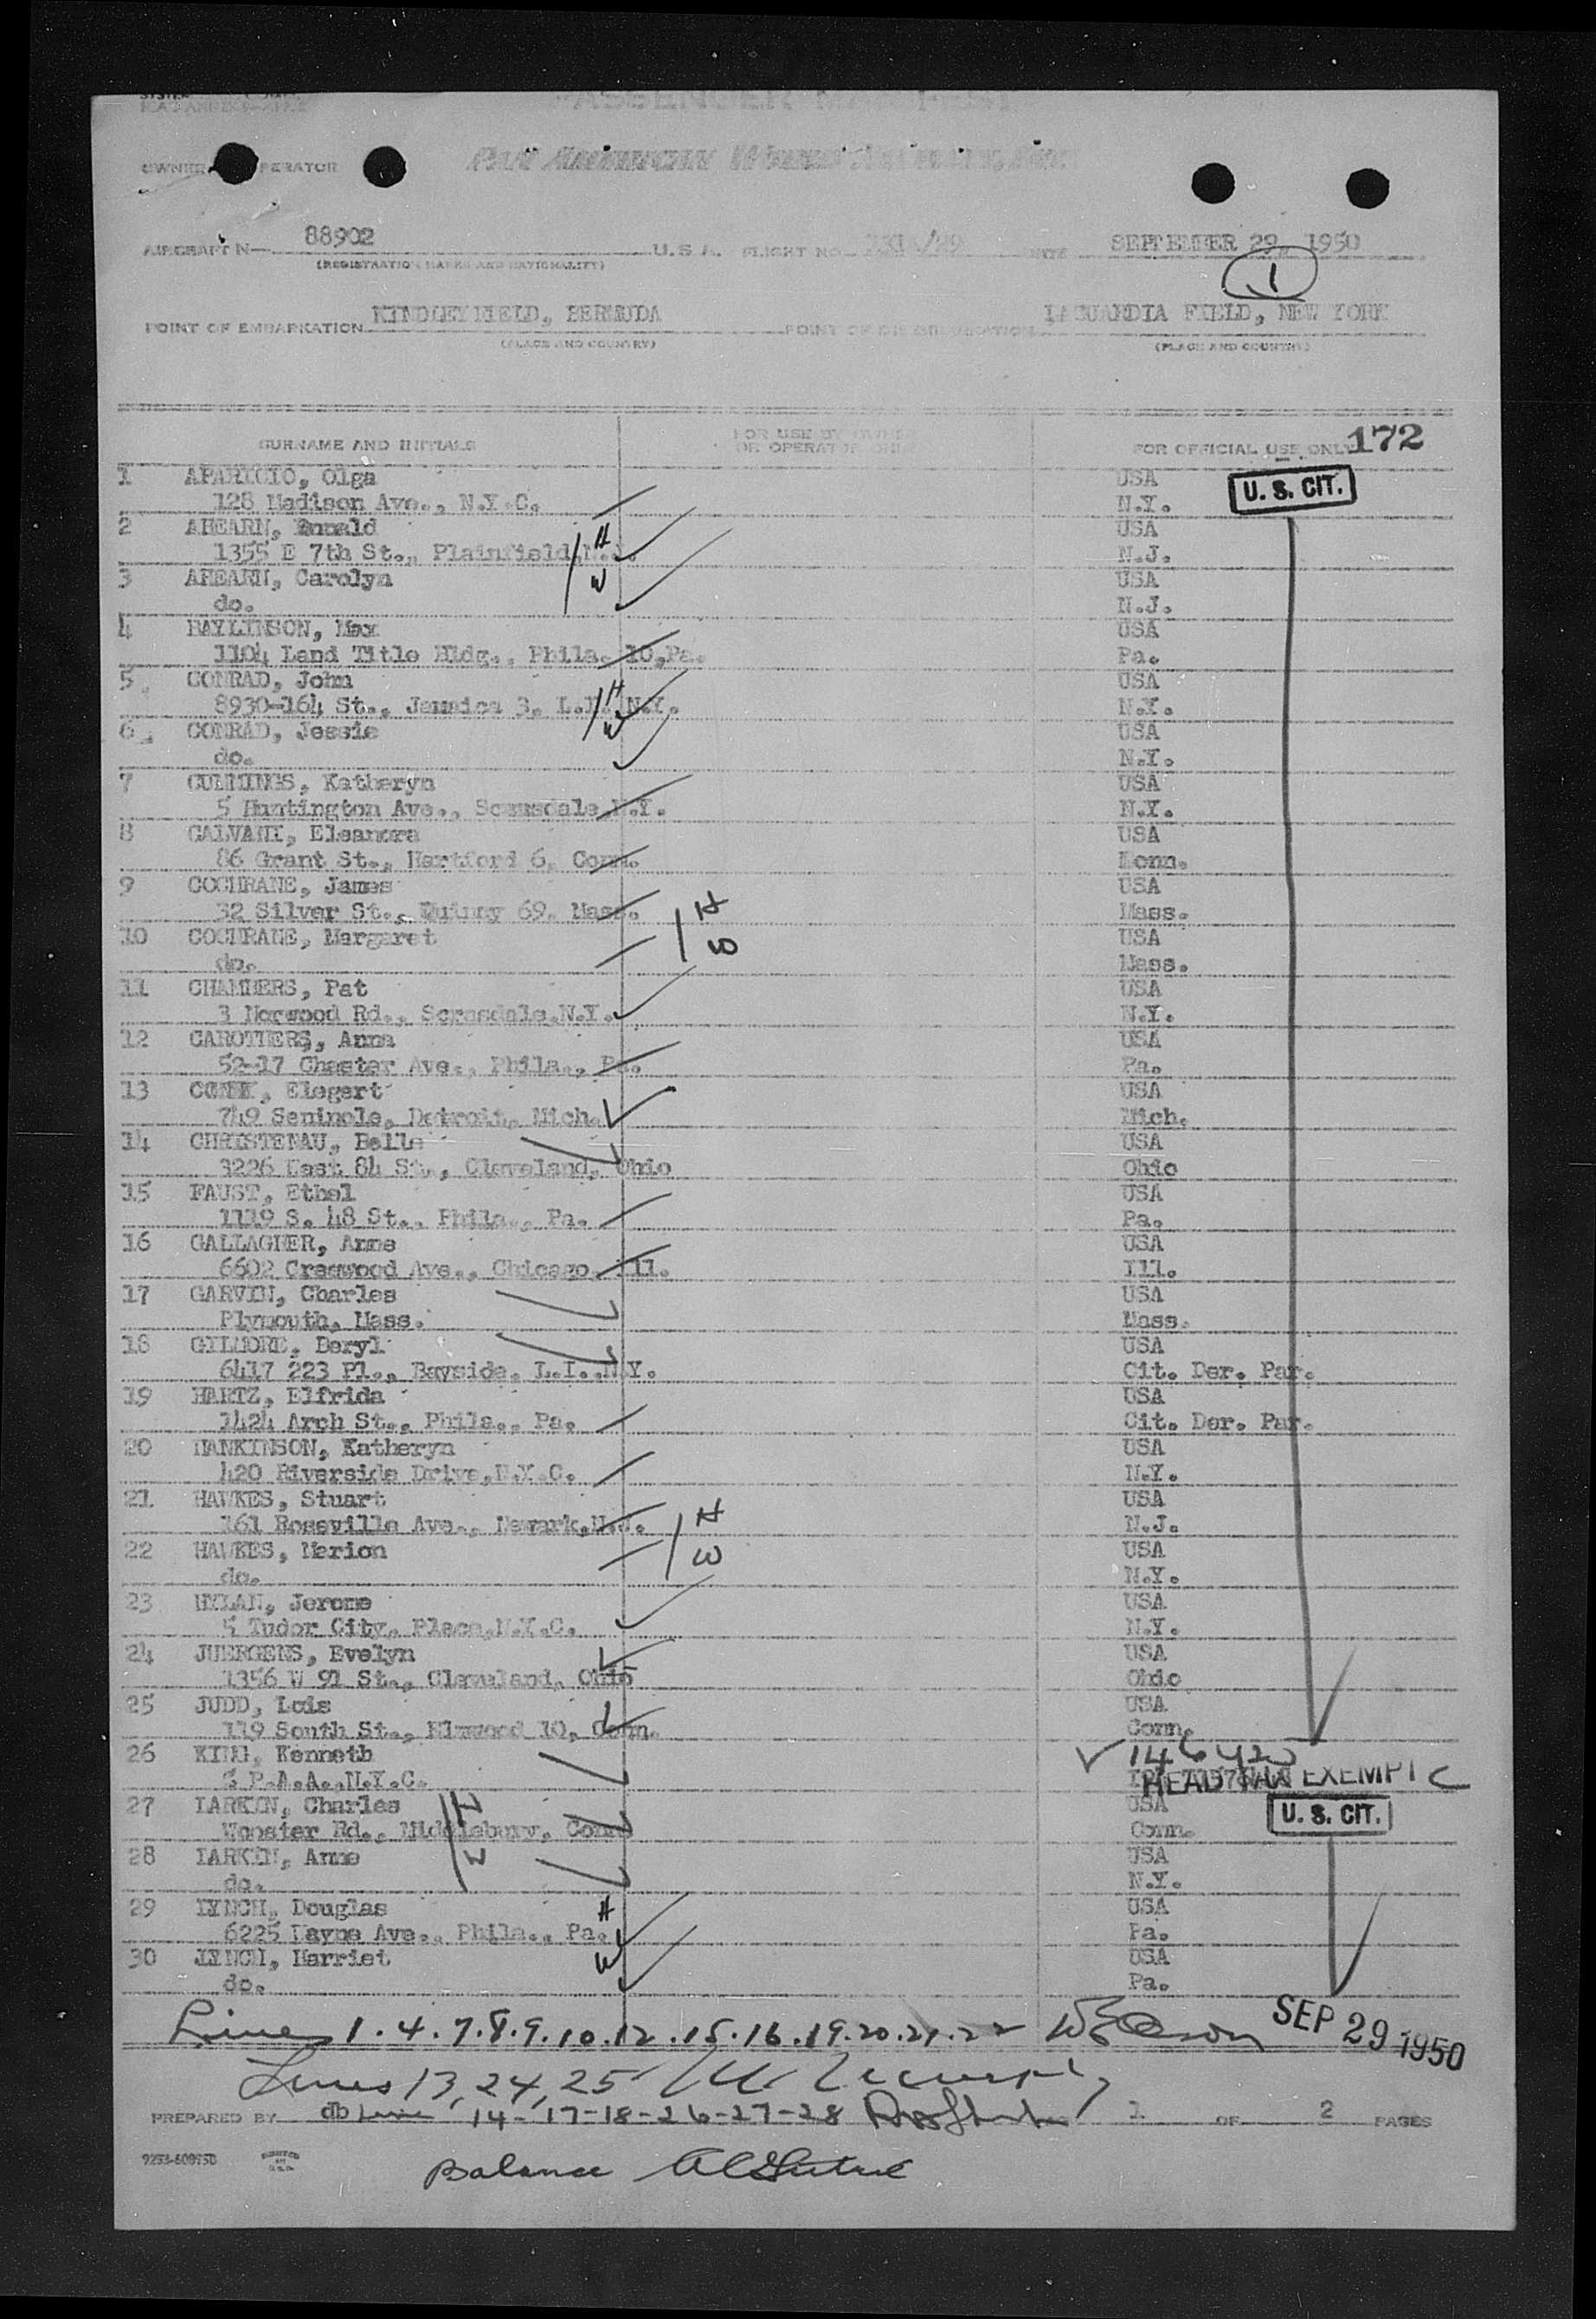 PASSENGER MANIFEST
OWNER OR OPERATOR PAN AMERICAN WORLD AIRWAYS, INC.
AIRCRAFT N— 88902 U.S.A. FLIGHT NO. /29 DATE SEPTEMBER 29, 1950
(REGISTRATION MARKS AND NATIONALITY)
1
POINT OF EMBARKATION KINDLEY FIELD, BERMUDA POINT OF DISEMBARKATION LAGUARDIA FIELD, NEW YORK
(PLACE AND COUNTRY) (PLACE AND COUNTRY)
SURNAME AND INITIALS FOR USE BY OWNER OR OPERATOR ONLY FOR OFFICIAL USE ONLY 172
1 APARICIO, Olga USA U. S. CIT.
128 Madison Ave., N.Y.C. N.Y.
2 AHEARN, Donald USA H
1355 E 7th St., Plainfield, N.J. N.J.
3 AHEARN, Carolyn USA W
do. N.J.
4 BAYLINSON, Max USA
1104 Land Title Bldg., Phila. 10, Pa. Pa.
5 CONRAD, John USA H
8930-164 St., Jamaica 3, L.I. N.Y. N.Y.
6 CONRAD, Jessie USA W
do. N.Y.
7 CUMMINGS, Katheryn USA
5 Huntington Ave., Scarsdale, N.Y. N.Y.
8 CALVANI, Eleanora USA
86 Grant St., Hartford 6, Conn. Conn.
9 COCHRANE, James USA
32 Silver St., Quincy 69, Mass. H Mass.
10 COCHRANE, Margaret W USA
do. Mass.
11 CHAMBERS, Pat USA
3 Norwood Rd., Scarsdale, N.Y. N.Y.
12 CAROTHERS, Anna USA
52-17 Chester Ave., Phila., Pa. Pa.
13 Elegert USA
749 Seminole, Detroit, Mich. Mich.
14 CHRISTENAU, Belle USA
3226 East 84 St., Cleveland, Ohio Ohio
15 FAUST, Ethel USA
1119 S. 48 St., Phila., Pa. Pa.
16 GALLAGHER, Anne USA
6602 Greenwood Ave., Chicago, Ill. Ill.
17 GARVIN, Charles USA
Plymouth, Mass. Mass.
18 GILMORE, Beryl USA
6417 223 Pl., Bayside, L.I., N.Y. Cit. Der. Par.
19 HARTZ, Elfrida USA
1424 Arch St., Phila., Pa. Cit. Der. Par.
20 HANKINSON, Katheryn USA
420 Riverside Drive, N.Y.C. N.Y.
21 HAWKES, Stuart USA
161 Roseville Ave., Newark, N.J. H N.J.
22 HAWKES, Marion W USA
do. N.Y.
23 HYLAN, Jerome USA
5 Tudor City, Place, N.Y.C. N.Y.
24 JUERGENS, Evelyn USA
1356 W 91 St., Cleveland, Ohio Ohio
25 JUDD, Lois USA
119 South St., Elmwood 10, Conn. Conn.
26 Kenneth
P.A.A., N.Y.C. HEAD TAX EXEMPT C
27 LARKIN, Charles H USA U. S. CIT.
Wooster Rd., Middlebury, Conn. Conn.
28 LARKIN, Anne W USA
do. N.Y.
29 LYNCH, Douglas H USA
6225 Wayne Ave., Phila., Pa. Pa.
30 LYNCH, Harriet W USA
do. Pa.
Lines 1.4.7.8.9.10.12.15.16.19.20.21.22 SEP 29 1950
Lines 13, 24, 25
PREPARED BY db Line 14-17-18-26-27-28 1 OF 2 PAGES
9253-60875B PRINTED IN U.S.A.
Balance